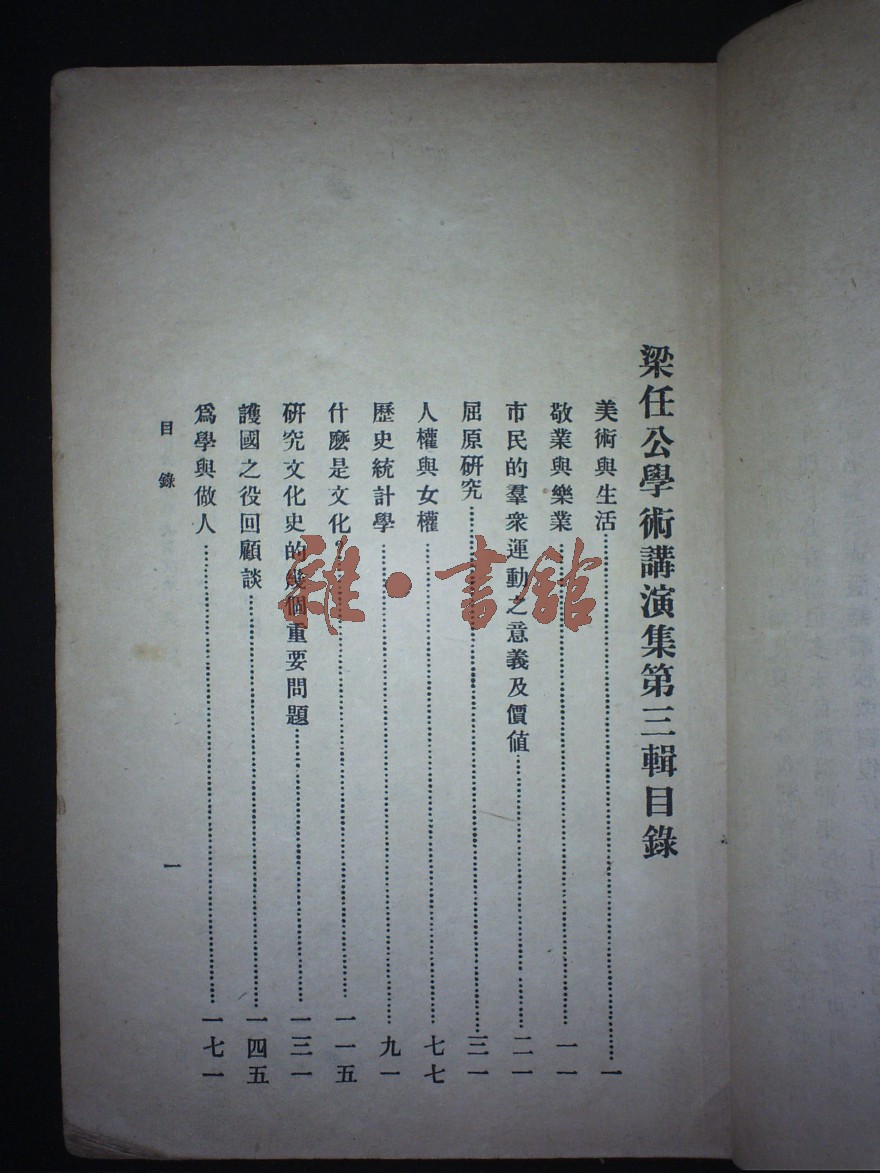 梁任公學術講演集第三輯目錄
美術與生活……一
敬業與樂業……一一
市民的羣衆運動之意義及價値……二一
屈原研究……三一
人權與女權……七七
歷史統計學……九一
什麽是文化?……一一五
研究文化史的幾個重要問題……一三一
護國之役回顧談……一四五
爲學與做人……一七一
目錄
一
雜·書館